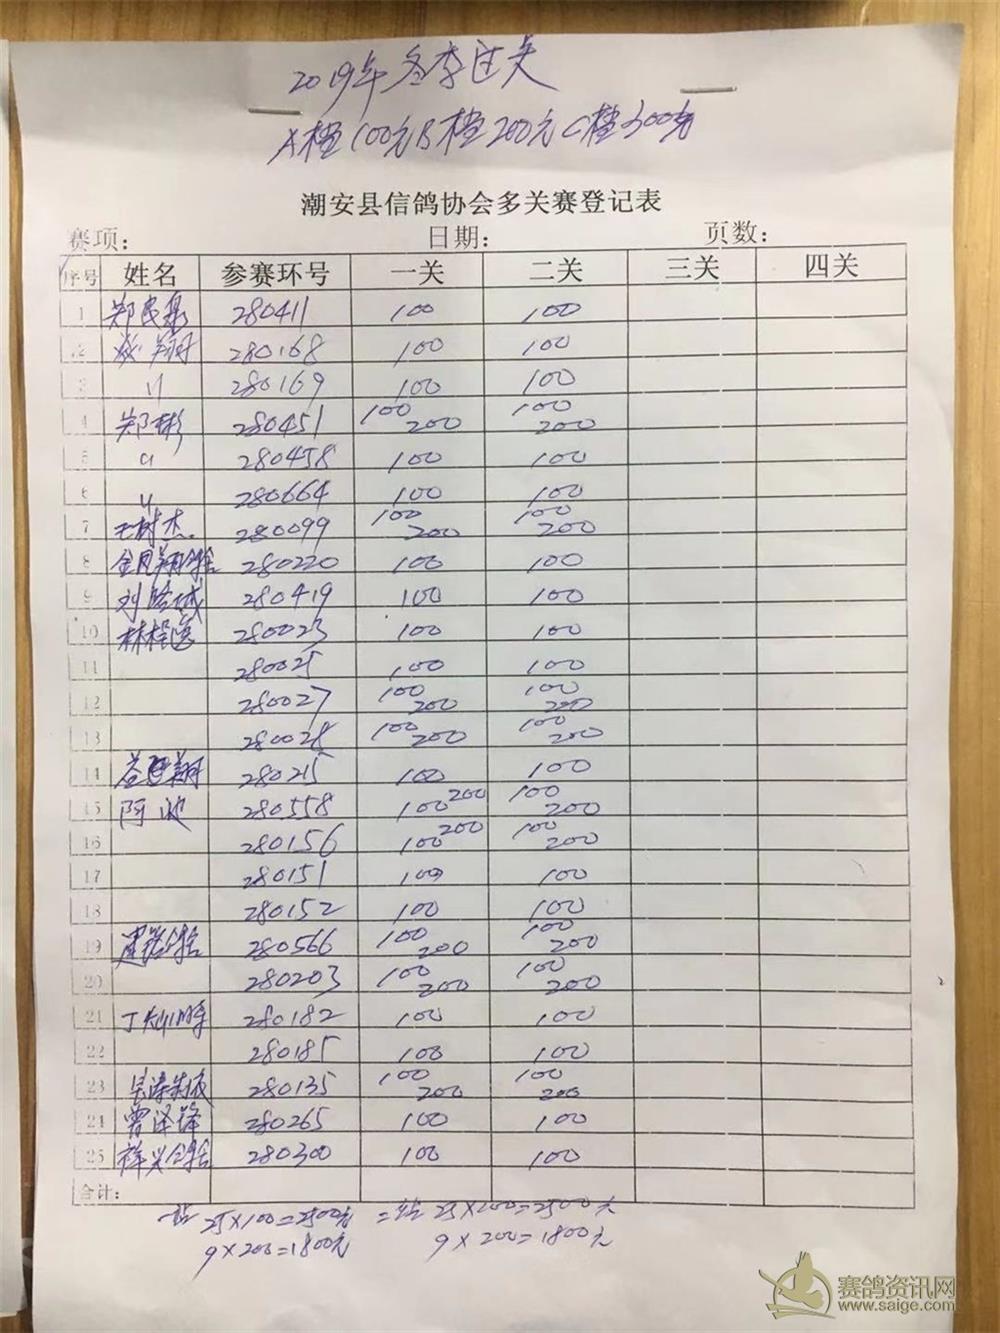 2019年冬季过关
A档100元B档200元C档300元
潮安县信鸽协会多关赛登记表
赛项: 日期: 页数:
序号 姓名 参赛环号 一关 二关 三关 四关
1 郑民泉 280411 100 100
2 翔 280168 100 100
3 〃 280169 100 100
4 郑彬 280451 100 200 100 200
5 〃 280458 100 100
6 〃 280664 100 100
7 王树杰 280099 100 200 100 200
8 金凤翔鸽舍 280220 100 100
9 刘 城 280419 100 100
10 林 280023 100 100
11 280025 100 100
12 280027 100 200 100 200
13 280028 100 200 100 200
14 翔 280215 100 100
15 阿 280558 100 200 100 200
16 280156 100 200 100 200
17 280151 100 100
18 280152 100 100
19 建 鸽舍 280566 100 200 100 200
20 280203 100 200 100 200
21 丁 280182 100 100
22 280185 100 100
23 280135 100 200 100 200
24 曾泽锋 280265 100 100
25 祥兴鸽舍 280300 100 100
合计:
25×100=2500元 二 25×100=2500元
9×200=1800元 9×200=1800元
赛鸽资讯网
www.saige.com